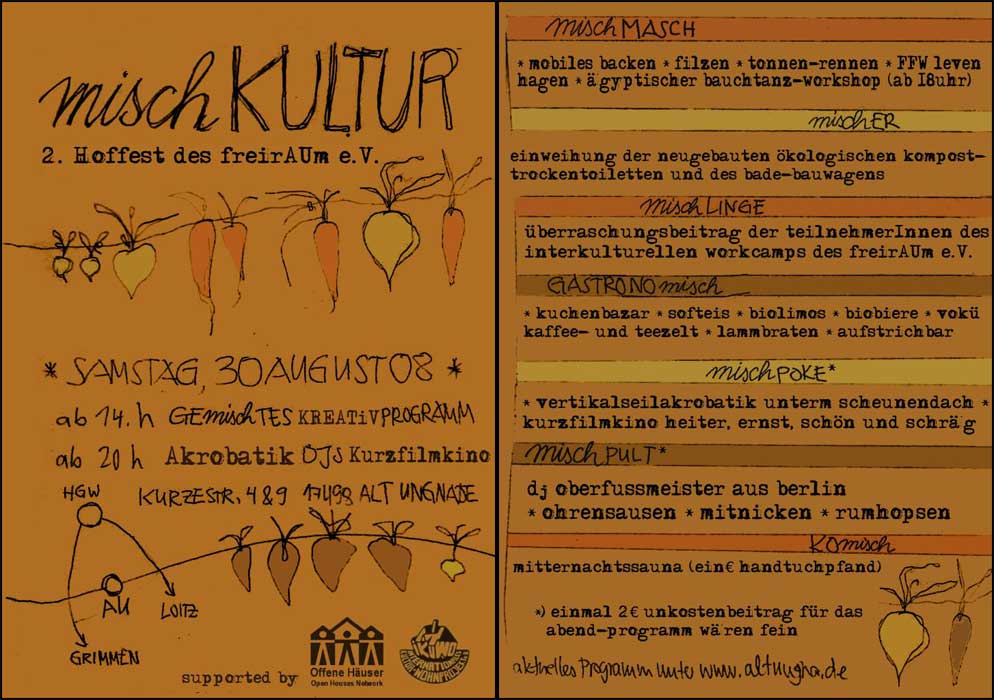 mischKULTUR
2. Hoffest des freirAUm e.V.
* SAMSTAG, 30 AUGUST 08 *
ab 14. h GEmischTES KREATiVPROGRAMM
ab 20 h Akrobatik DJS Kurzfilmkino
KURZESTR. 4 & 9 17498 ALT UNGNADE
HGW
AU
LOITZ
GRIMMEN
supported by
Offene Häuser
Open Houses Network
mischMASCH
* mobiles backen * filzen * tonnen-rennen * FFW leven
hagen * ägyptischer bauchtanz-workshop (ab 18uhr)
mischER
einweihung der neugebauten ökologischen kompost-
trockentoiletten und des bade-bauwagens
mischLINGE
überraschungsbeitrag der teilnehmerInnen des
interkulturellen workcamps des freirAUm e.V.
GASTRONOmisch
* kuchenbazar * softeis * biolimos * biobiere * vokü
kaffee- und teezelt * lammbraten * aufstrichbar
mischPOKE*
* vertikalseilakrobatik unterm scheunendach *
kurzfilmkino heiter, ernst, schön und schräg
mischPULT*
dj oberfussmeister aus berlin
* ohrensausen * mitnicken * rumhopsen
KOmisch
mitternachtssauna (ein€ handtuchpfand)
*) einmal 2€ unkostenbeitrag für das
abend-programm wären fein
aktuelles Programm unter www.altungna.de